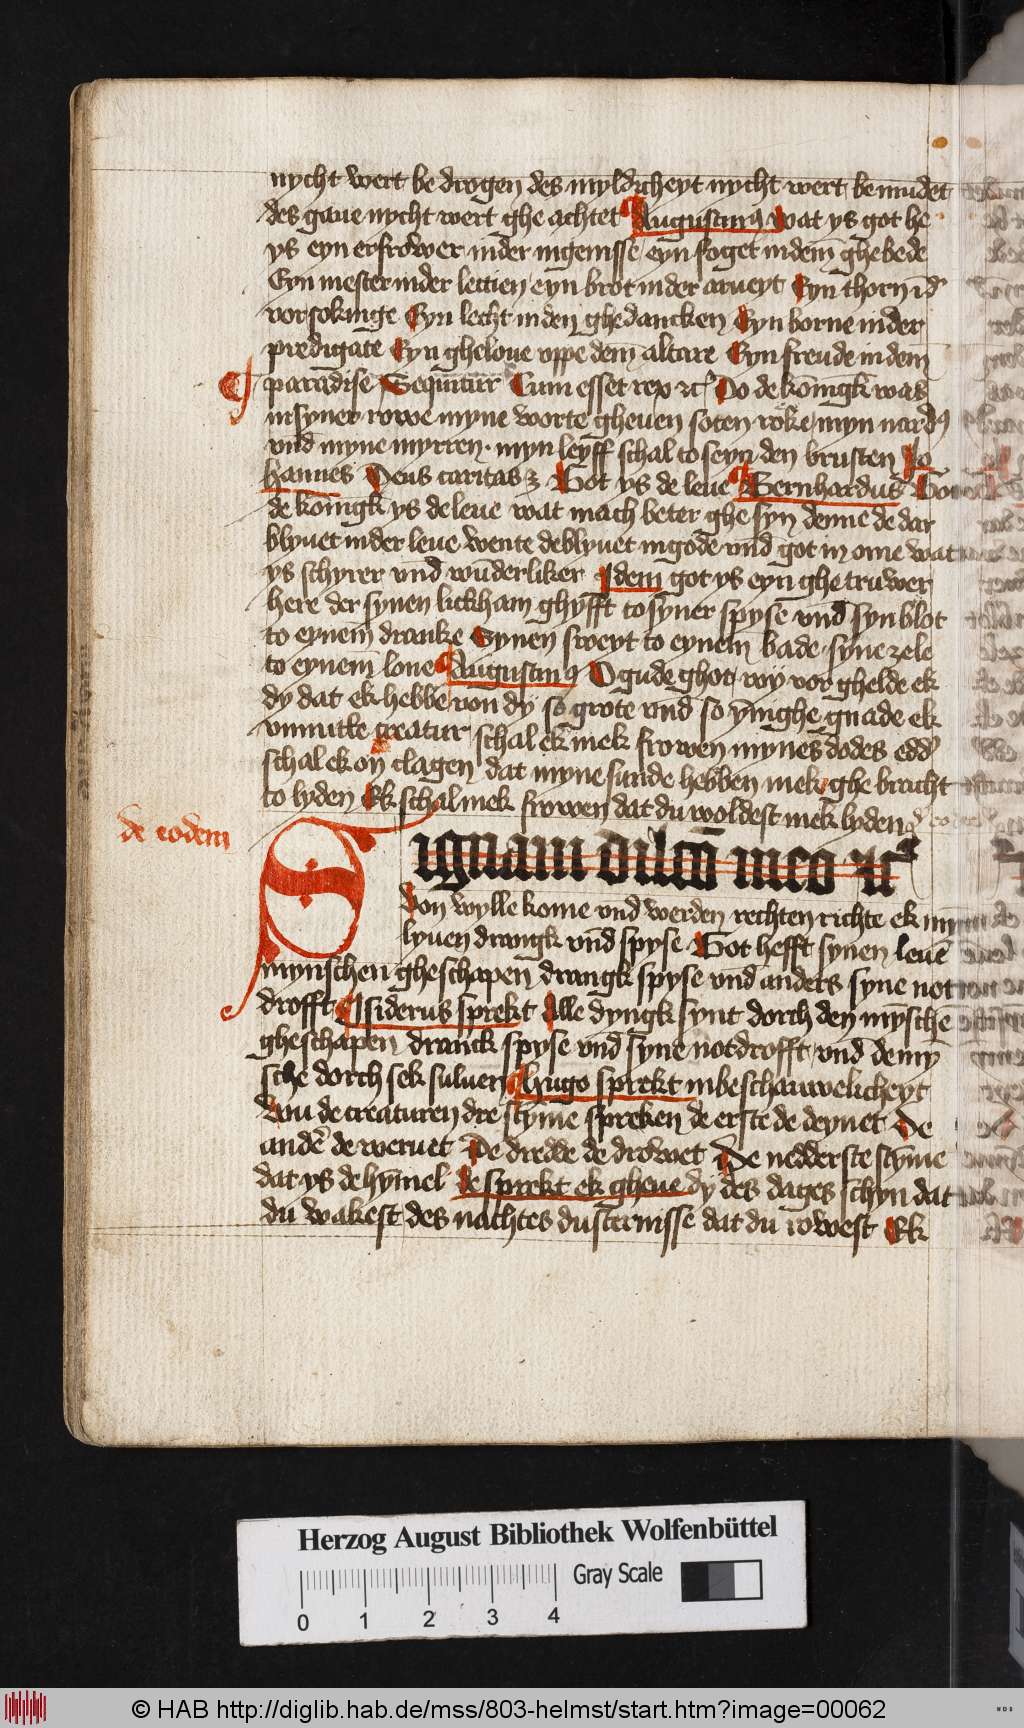 nycht wert be drogen des myldicheyt nycht wert be mudet
des gaue nycht wert ghe achtet Augustinꝰ wat ys got he
ys eyn erfrower in der ingenisse eyn foget in dem̄ ghebede
Eyn mester in der lectien eyn brot in der arueyt Eyn thorn īd'
vorsokinge Eyn lecht in den ghedancken Eyn borne in der
predigate Eyn gheloue vppe dem̄ altare Eyn freude in dem̄
paradise Sequitur Cum esset rex ⁊cͬ Do de konigk was
in syner rowe myne worte gheuen soten roke myn nardꝰ
vnd myne myrren · myn leyff schal to seyn den brusten Jo
hannes Deus caritas ē Got ys de leue Bernhardus Got
de konigk ys de leue wat mach beter ghe syn denne de dar
blyuet in der leue wente de blyuet in gode vnd got in ome wat
ys schyrer vnd wūderliker Idem got ys eyn ghe truwer
here der synen lickham ghyfft to syner spyse vnd syn blot
to eynem drancke Synen sweyt to eynem bade · syne zele
to eynem̄ lone Augustinꝰ O gude ghot wy vor ghelde ek
dy dat ek hebbe von dy so grote vnd so ynighe gnade ek
vnnutte creatur schal ek mek frowen mynes dodes edd'
schal ek on clagen dat myne sunde hebben mek ghe bracht
to lyden Ek schal mek frowen dat du woldest mek lyden
de eodem
Signam dilcō meo ⁊cͬ
Von wylle kome vnd werden rechten richte ek mynem
lyuen drangk vnd spyse Got hefft synen leuē
mynschen gheschapen drangk spyse vnd anders syne not
drofft Isiderus sprekt Alle dyngk synt dorch den mȳsche
gheschapen dranck spyse vnd syne notdrofft vnd de mȳ
sche dorch sek suluen Hugo sprekt in beschauwelicheyt
Von de creaturen dre stȳme spreken de erste de deynet De
andē de weruet De dredde de drowet De nedderste stȳme
dat ys de hȳmel De sprekt ek gheue dy des dages schyn dat
du wakest des nachtes dusternisse dat du rowest Ek
Herzog August Bibliothek Wolfenbüttel
Gray Scale
0 1 2 3 4
© HAB http://diglib.hab.de/mss/803-helmst/start.htm?image=00062